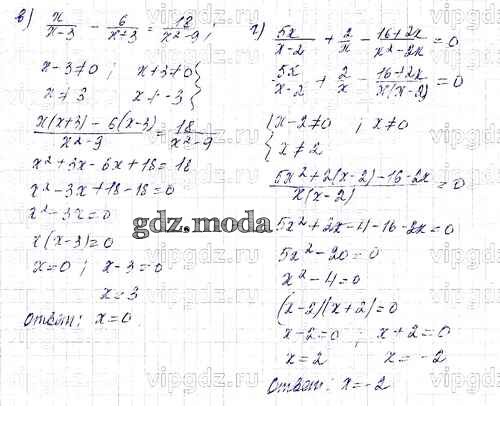 в) x/(x-3) - 6/(x+3) = 18/(x²-9);
x-3≠0 ; x+3≠0
x≠3 x≠-3
(x(x+3) - 6(x-3))/(x²-9) = 18/(x²-9)
x²+3x-6x+18=18
x²-3x+18-18=0
x²-3x=0
x(x-3)=0
x=0 ; x-3=0
x=3
Ответ: x=0
г) 5x/(x-2) + 2/x - (16+2x)/(x²-2x) = 0
5x/(x-2) + 2/x - (16+2x)/(x(x-2)) = 0
{ x-2≠0 ; x≠0
x≠2
(5x²+2(x-2)-16-2x)/(x(x-2)) = 0
5x²+2x-4-16-2x=0
5x²-20=0
x²-4=0
(x-2)(x+2)=0
x-2=0 ; x+2=0
x=2 x=-2
Ответ: x=-2
gdz.moda
vipgdz.ru